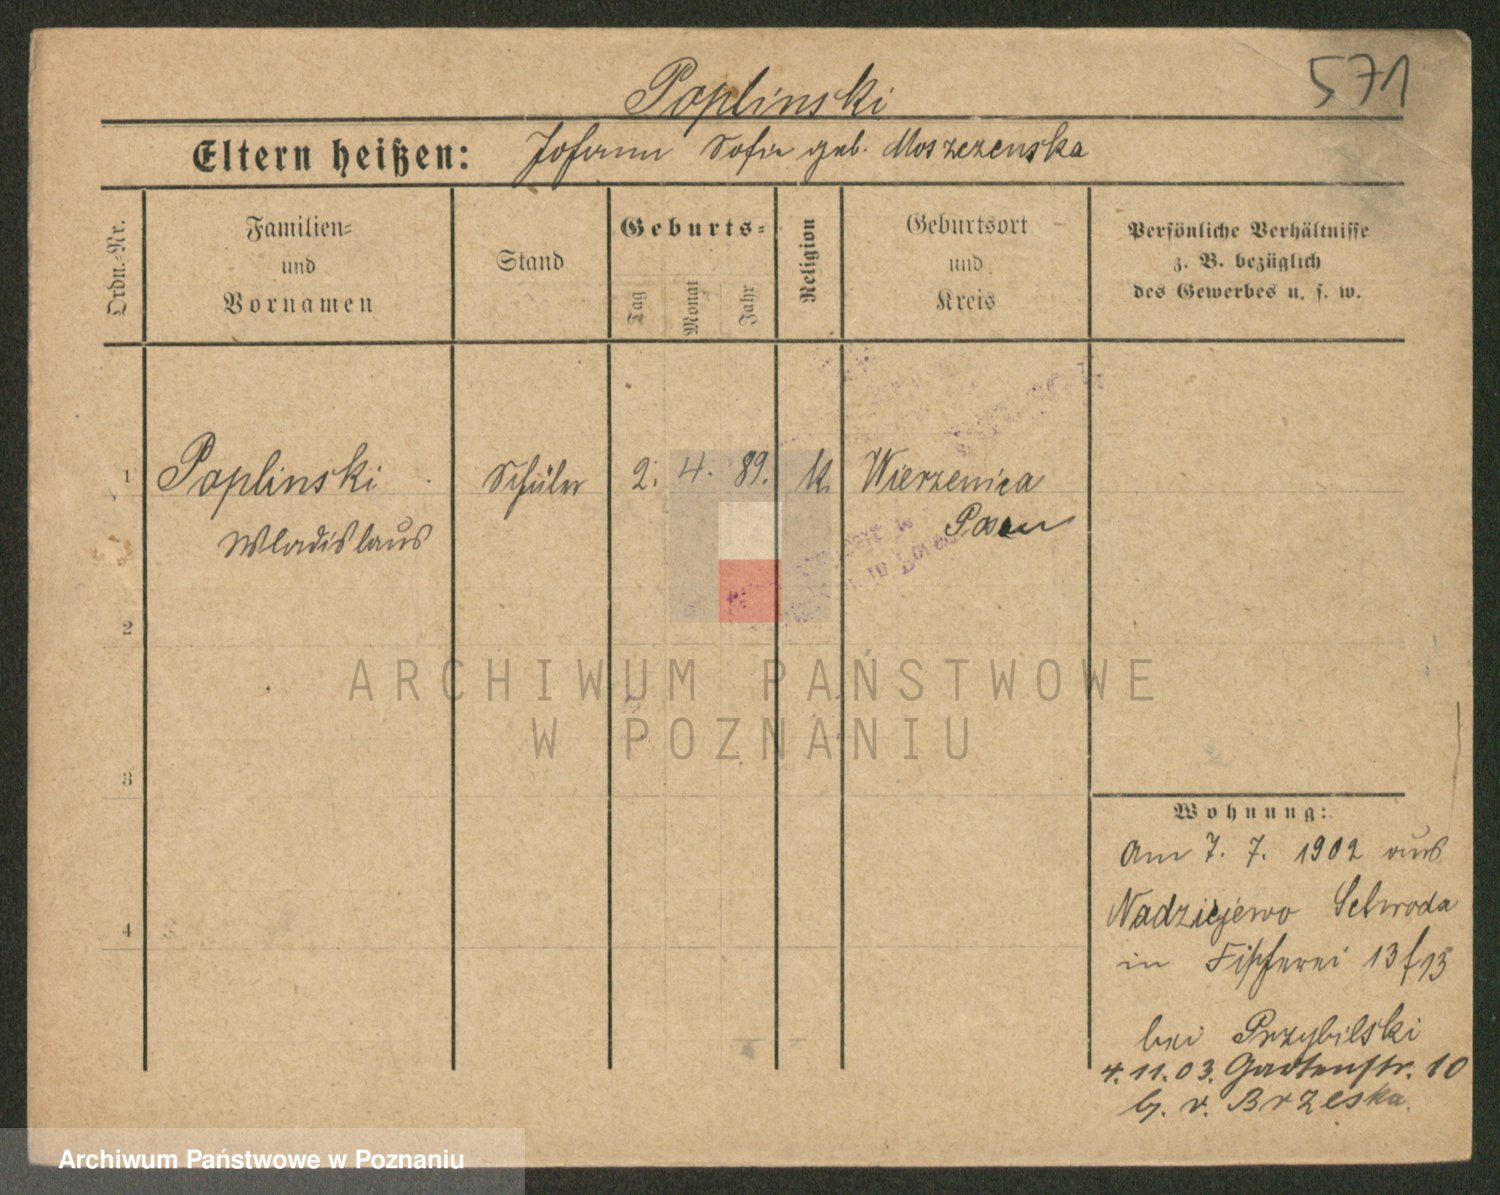 571
Poplinski
Eltern heißen: Johann Sofie geb. Moszezenska
Ordn.-Nr.
Familien-
und
Vornamen
Stand
Geburts-
Tag
Monat
Jahr
Religion
Geburtsort
und
Kreis
Persönliche Verhältnisse
z. B. bezüglich
des Gewerbes u. s. w.
1 Poplinski Schüler 2. 4. 89. k. Wierzenica
Wladislaus Posen
2
3
4
Wohnung:
Am 7. 7. 1902 aus
Nadziejewo Schroda
in Fischerei 13
bei Przybilski
4. 11. 03. Gartenstr. 10
b. v. Brzeska.
ARCHIWUM PAŃSTWOWE
W POZNANIU
Archiwum Państwowe w Poznaniu